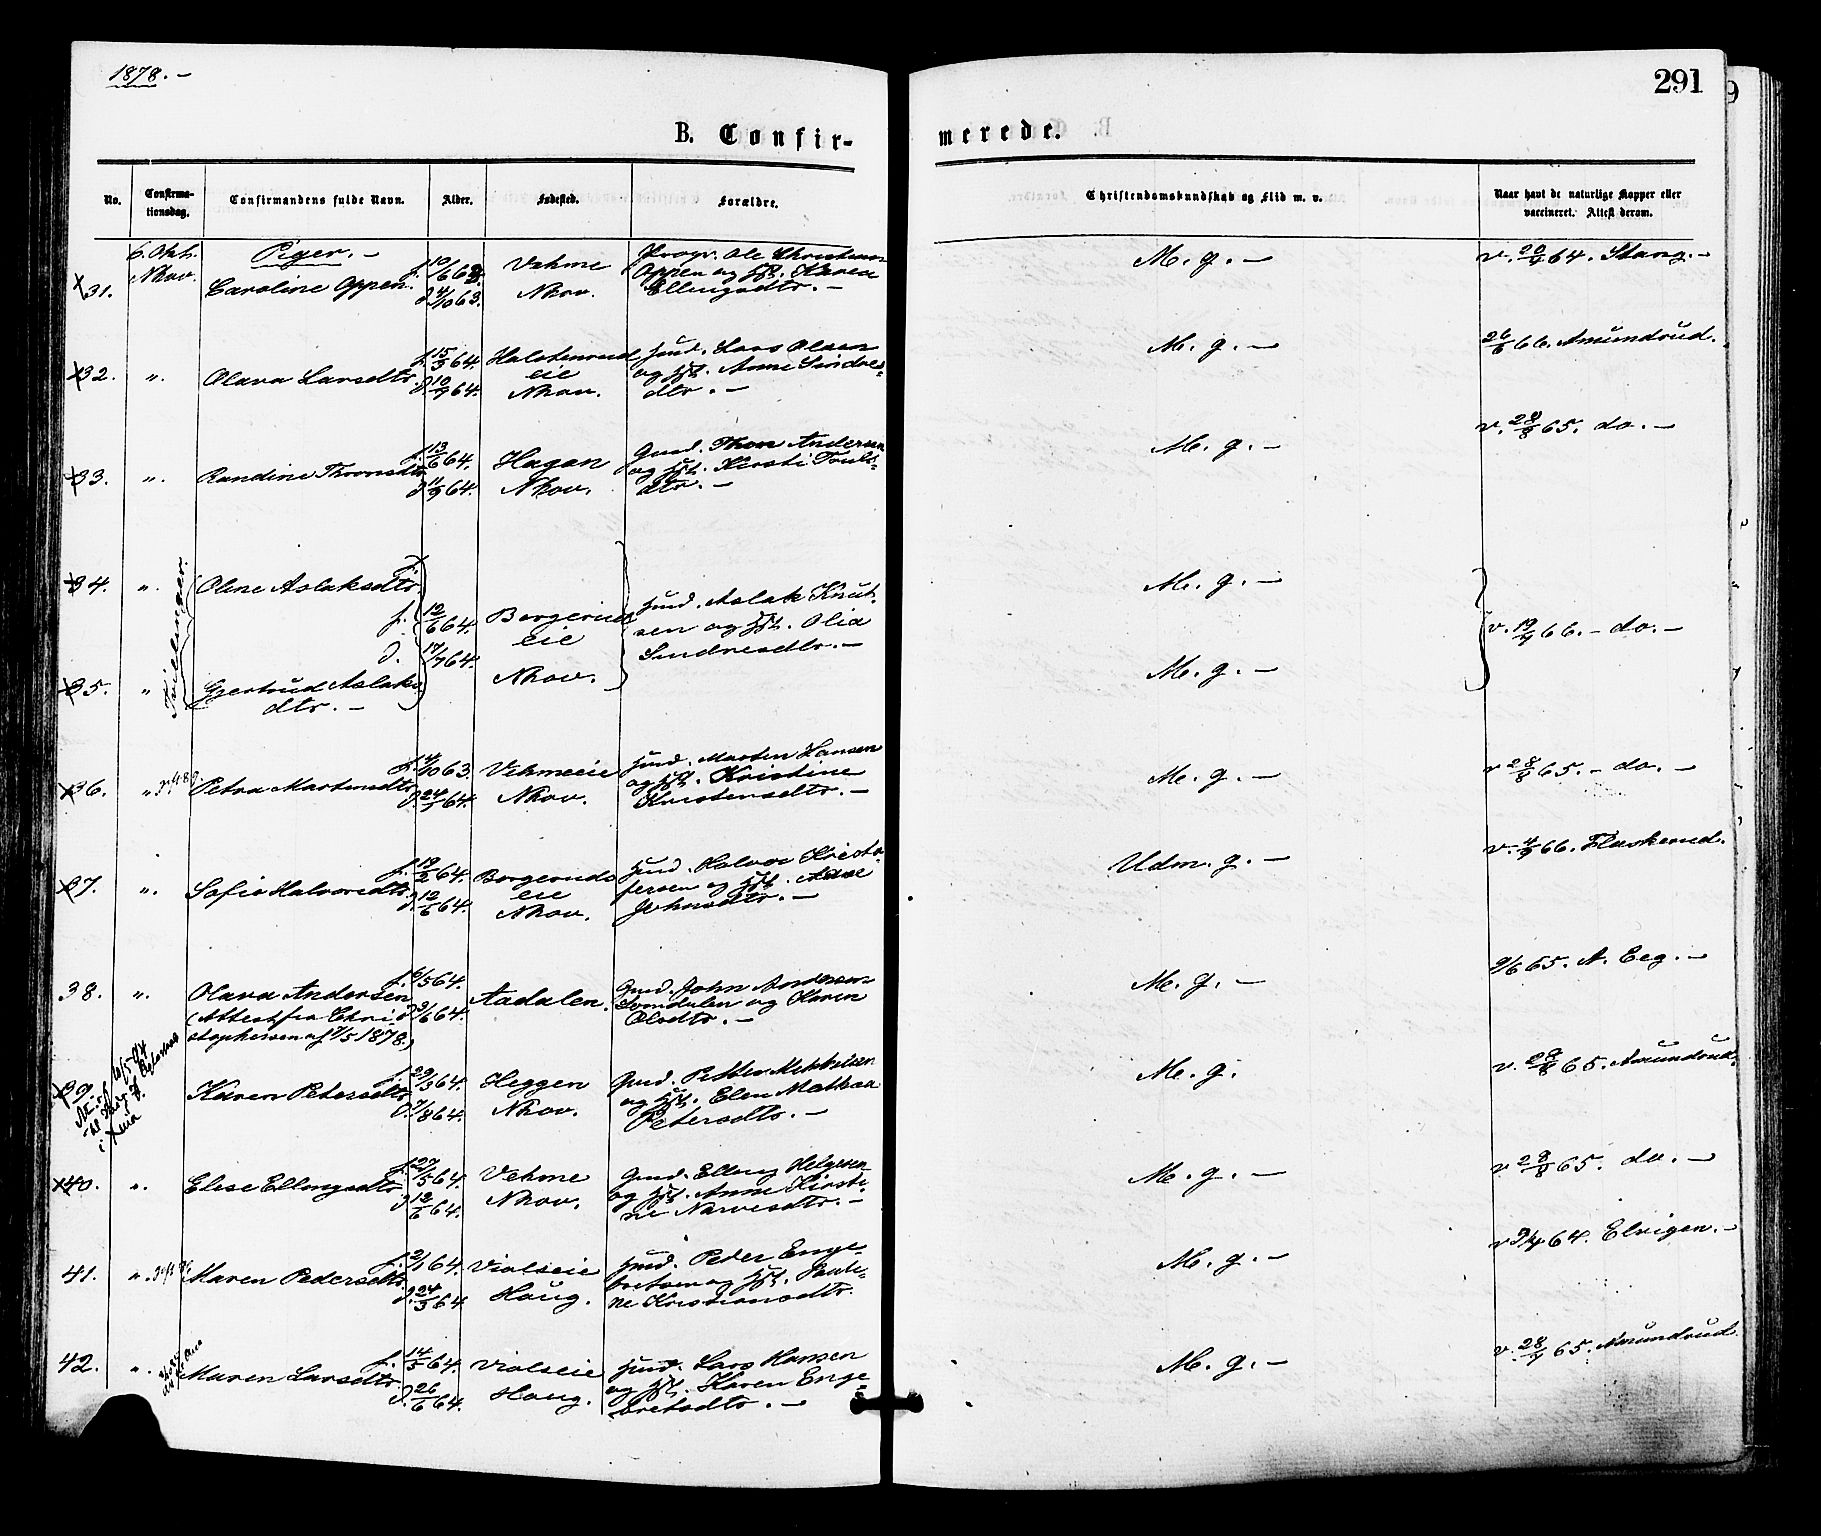 1878.-
291
B. Confir-
merede.
No.
Confirma-
tionsdag.
Confirmandens fulde Navn.
Alder.
Fødested.
Forældre.
Christendomskundskab og Flid m. v.
Naar havt de naturlige Kopper eller
vaccineret. Attest derom.
6. Okt.
Nhov.
Piger.-
31.
Caroline Oppen.
f. 10/6 63.
d. 4/10 63.
Vehme
Nhov.
Progr. Ole Christensen
Oppen og Hst. Karen
Ellingsdtr.-
M. g.-
v. 20/9 64. Stang.-
32.
".
Olava Larsdtr.
f. 15/3 64.
d. 10/9 64.
Halstenrud
eie
Nhov.
Husd. Lars Olsen
og Hst. Anne Sindres-
dtr.-
M. g.-
26/6 66. Amundrud.
33.
".
Randine Thoresdtr.
f. 13/6 64.
d. 11/9 64.
Hagan
Nhov.
Gaud. Thore Andersen
og Hst. Kirsti Truls-
dtr.-
M. g.-
v. 28/8 65. do.-
Trillinger.
34.
".
Olene Aslaksdtr.
35.
"
Gjertrud Aslaks-
dtr.-
f. 12/6 64.
d. 17/7 64.
Borgerud
eie
Nhov.
Husd. Aslak Knut-
sen og Hst. Olia
Sindresdtr.-
M. g.-
M. g.-
v. 19/9 66.- do.-
36.
"
Petra Martinsdtr.
f. 4/10 63.
d. 24/1 64.
Vehmeeie
Nhov.
Husd. Morten Hansen
og Hst. Kristine
Kristensdtr.-
M. g.-
v 28/8 65.- do.-
37.
".
Sofie Halvorsdtr.
f. 19/2 64.
d. 12/6 64.
Borgeruds
eie
Nhov.
Husd. Halvor Kristo-
fersen og Hst. Anne
Johnsdtr.-
Udm. g.-
v. 4/9 66. Flaskerud.
38.
".
Olava Andersen
(Attest fra Chri-
stophersen af 7/5 1878.)
f. 6/5 64.
d. 3/6 64.
Aadalen.
Gmd. John Andersen
Svendalen og Karen
Olsdtr.-
M. g.-
9/6 65. A. Eeg.-
39.
Karen Petersdtr.
f. 29/3 64.
d. 7/8 64.
Heggen
Nhov.
Gmd. Petter Mikkelsen
og Hst. Elen Mathea
Petersdtr.-
M. g.
v. 28/8 65. Amundrud.
40.
".
Elise Ellingsdtr.
f. 27/5 64.
d. 12/6 64.
Vehme
Nhov.
Gmd. Elling Helgesen
og Hst. Anne Kirsti-
ne Narvesdtr.-
M. g.-
v 28/8 65. do.-
41.
"
Maren Pedersdtr.
f. 2/1 64.
d. 24/3 64
Violseie
Houg.
Husd. Peder Enge-
bretsen og Hst. Pauli-
ne Kristiansdtr.
M. g.-
64. Elvigen.-
42.
".
Maren Larsdtr.
f. 14/5 64.
d. 26/6 64.
Violseie
Houg.
Husd. Lars Hansen
og Hst. Karen Enge-
bretsdtr.-
M. g.-
v. 28/7 65. Amundrud.